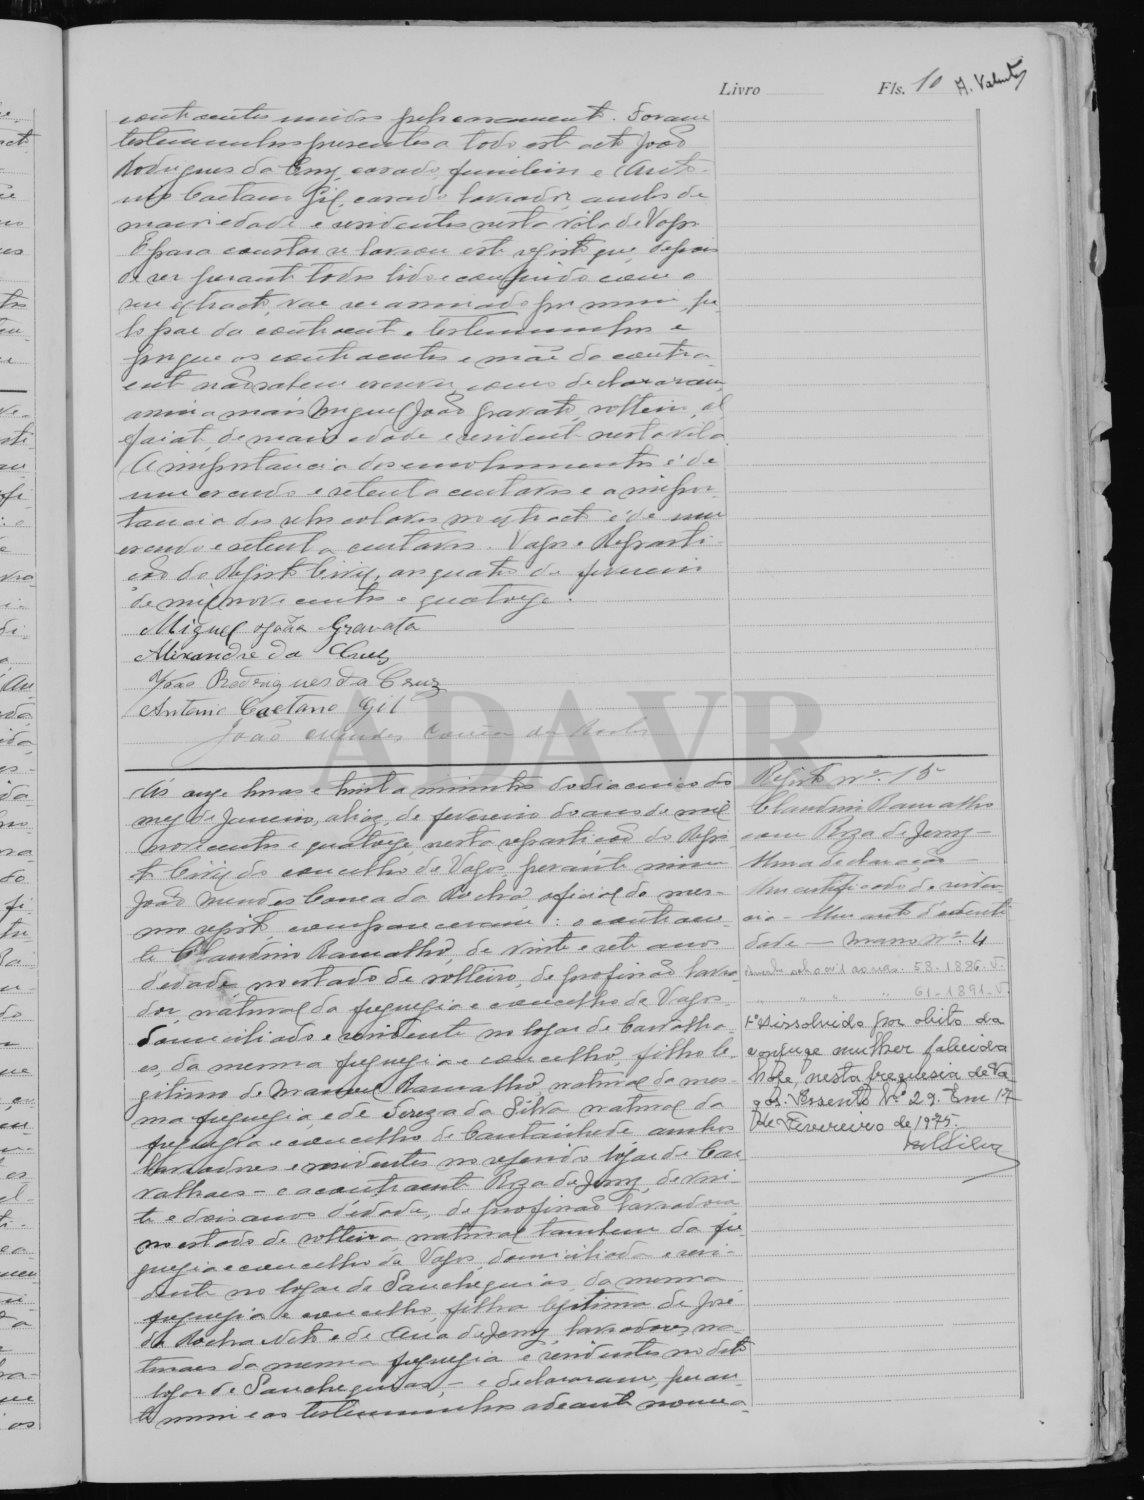 Livro Fls. 10 A. Valente
contraentes unidos pelo casamento. Foram
testemunhas presentes a todo este acto João
Rodrigues da Cruz, casado, funileiro e Anto-
nio Caetano Gil, casado, lavrador, ambos de
maior idade e residentes nesta vila de Vagos
E para constar se lavrou este registo que, depois
de ser perante todos lido e conferido com o
seu extracto, vae ser assinado por mim, pe-
lo pae da contraente e testemunhas e
porque os contraentes e mãe da contra-
ente não sabem escrever, como declararam,
assina mais Miguel João Gravato, solteiro, al-
faiate, de maior edade e residente nesta vila.
A importancia dos emolumentos é de
um escudo e setenta centavos e a impor-
tancia dos selos colados no extracto é de um
escudo e setenta centavos. Vagos e Reparti-
ção do Registo Civil, aos quatro de fevereiro
de mil nove centos e quatorze.
Miguel João Gravato
Alexandre da Cruz
João Rodrigues da Cruz
Antonio Caetano Gil
João Mendes Correia da Rocha
ADAVR
Ás onze horas e trinta minutos do dia cinco do
mez de Janeiro, aliaz, de fevereiro do ano de mil
novecentos e quatorze, nesta repartição do Regis-
to Civil do concelho de Vagos, perante mim
João Mendes Correa da Rocha, oficial do mes-
mo registo, compareceram: o contraen-
te Claudino Ramalho, de vinte e sete anos
d'edade, no estado de solteiro, de profissão lavra-
dor, natural da freguezia e concelho de Vagos
domiciliado e residente no logar de Carvalha-
es, da mesma freguezia e concelho, filho le-
gitimo de Manuel Ramalho, natural da mes-
ma freguezia, e de Tereza da Silva natural da
freguezia e concelho de Cantanhede ambos
lavradores e residentes no referido logar de Car-
valhaes - e a contraente Roza de Jezuz, de vin-
te e dois anos d'edade, de profissão lavradora
no estado de solteira, natural tambem da fre-
guezia e concelho de Vagos, domiciliada e resi-
dente no logar de Sanchequias, da mesma
freguezia e concelho, filha legitima de José
da Rocha Neto e de Ana de Jezuz, lavradores, na-
turaes da mesma freguezia e residentes no dito
logar de Sanchequias, - e declararam, peran-
te mim e as testemunhas adeante nomea-
Registo nº 15
Claudino Ramalho
com Roza de Jezuz -
Uma declaração
Um certificado de residen-
cia - Um auto d'identi-
dade - Maço nº 4
58-1886-V.
61-1891-V.
1º Dissolvido por obito da
conjuge mulher falecida
hoje, nesta freguesia de Va-
gos. Assento Nº 29. Em 17
de Fevereiro de 1975.